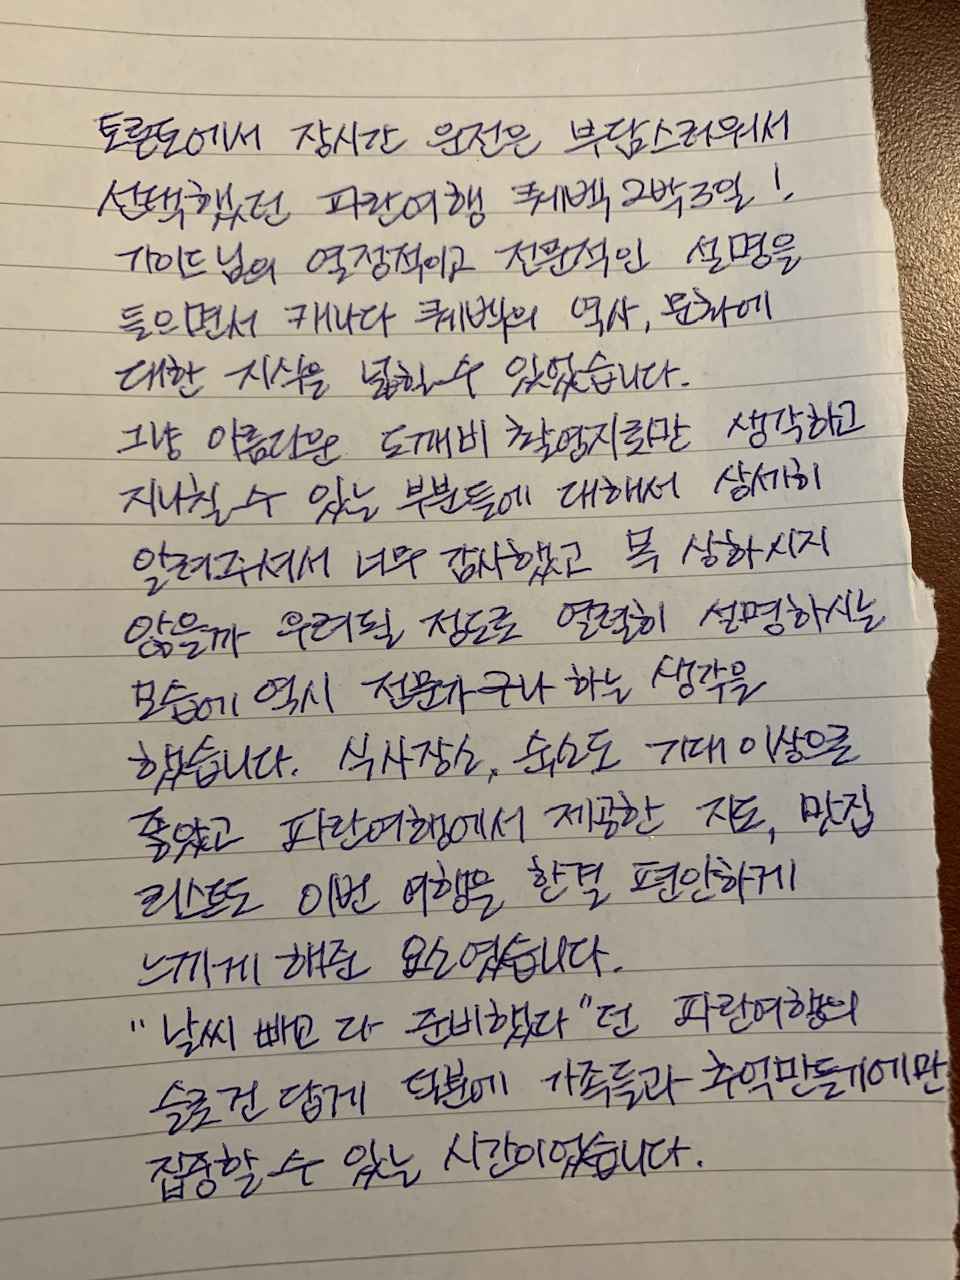 토론토에서 장시간 운전은 부담스러워서
선택했던 파란여행 퀘벡 2박3일!
가이드님의 열정적이고 전문적인 설명을
들으면서 캐나다 퀘벡의 역사, 문화에
대한 지식을 넓힐 수 있었습니다.
그냥 아름다운 도깨비 촬영지로만 생각하고
지나칠 수 있는 부분들에 대해서 상세히
알려주셔서 너무 감사했고 목 상하시지
않을까 우려될 정도로 열렬히 설명하시는
모습에 역시 전문가구나 하는 생각을
했습니다. 식사장소, 숙소도 기대 이상으로
좋았고 파란여행에서 제공한 지도, 맛집
리스트도 이번 여행을 한결 편안하게
느끼게 해준 요소였습니다.
"날씨 빼고 다 준비했다"던 파란여행의
슬로건 답게 덕분에 가족들과 추억만들기에만
집중할 수 있는 시간이었습니다.